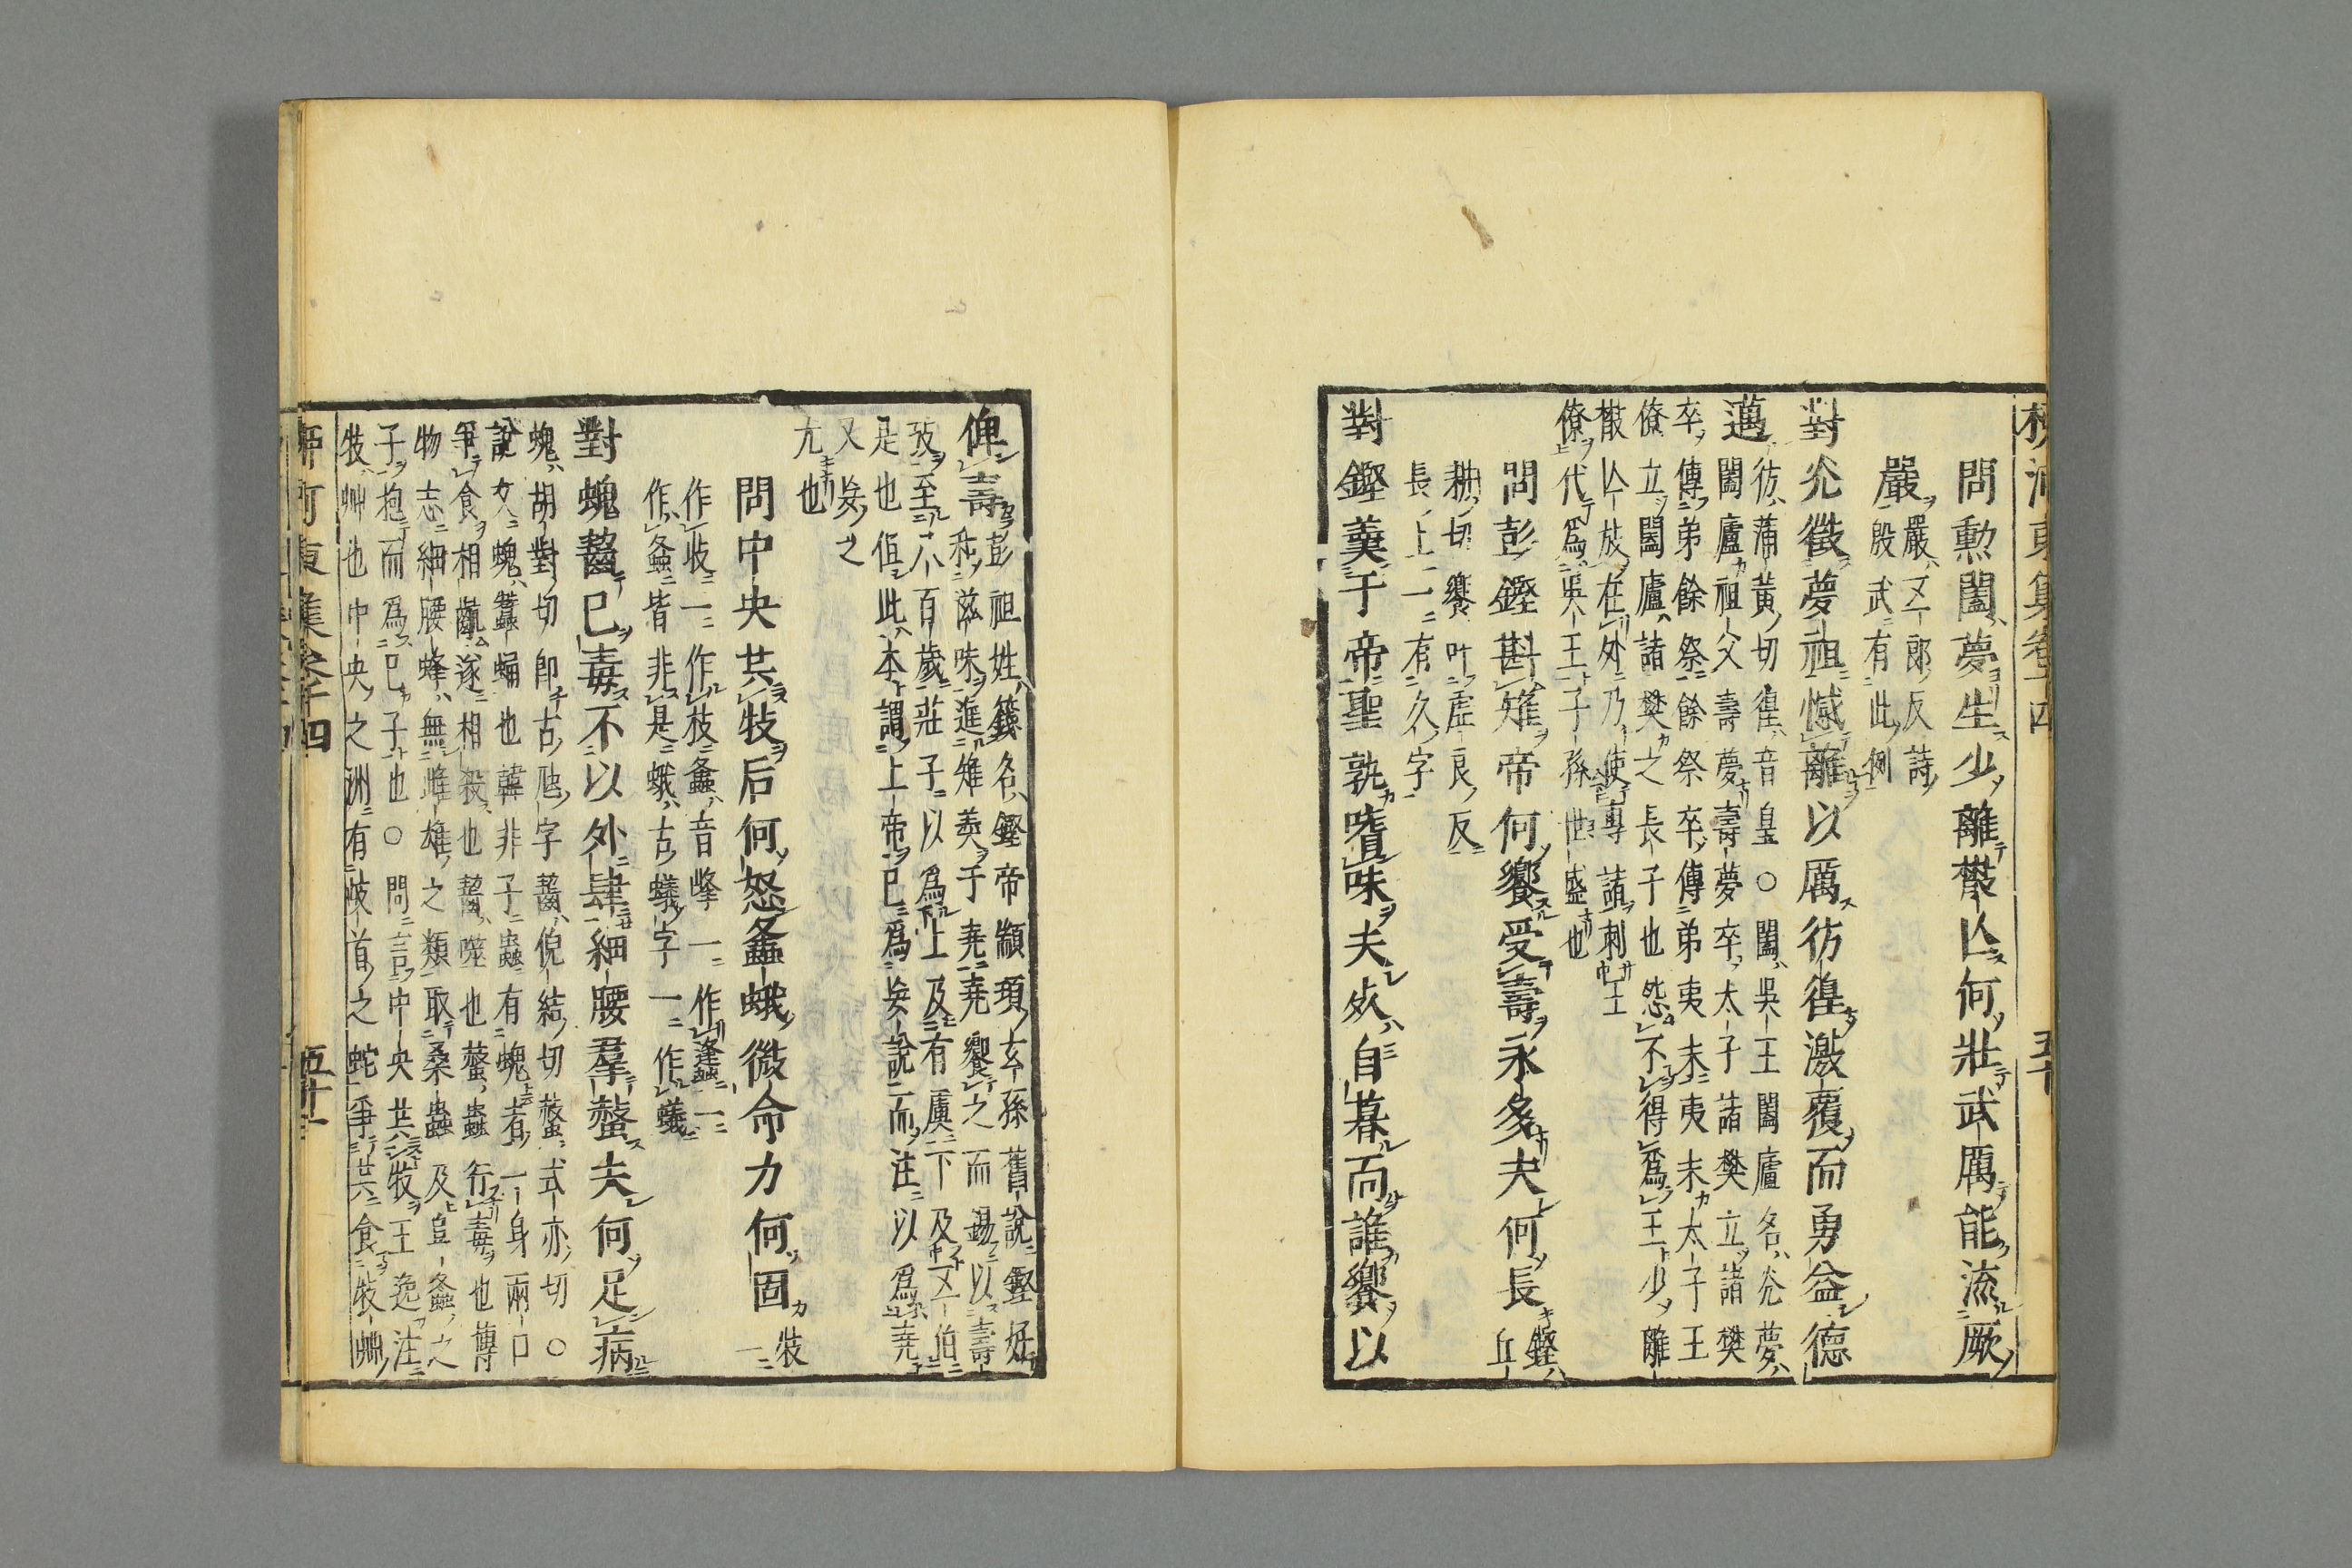 問勳闔夢生少離散亾何壯武厲能流厥
嚴嚴又一郎反詩
殷武有此例
對光徵夢祖憾離以厲彷徨激覆而勇益德
邁彷蒲黃切徨音皇○闔吳王闔廬名光夢
闔廬祖父壽夢壽夢卒太子諸樊立諸樊
卒傳弟餘祭餘祭卒傳弟夷未夷未太子王
僚立闔廬諸樊之長子也怨不得爲王少離
散亾放在外乃使專諸刺王
僚代爲吳王子孫世盛也
問彭鏗斟雉帝何饗受壽永多夫何長鏗丘
耕切饗叶虛良反
長上一有久字
對鏗羹于帝聖孰嗜味夫死自暮而誰饗以
俾壽彭祖姓籛名鏗帝顓頊玄孫舊說鏗好
和滋味進雉羹于堯堯饗之而錫以壽
攷至八百歲莊子以爲上及有虞下及五伯
是也但此本謂上帝已爲妄說而注以爲堯
又妄之
尢也
問中央共牧后何怒螽蛾微命力何固牧一
作岐一作枝螽音峰一作蠭一
作螽皆非是蛾古蟻字一作蟻
對螝齧已毒不以外肆細腰羣螫夫何足病
螝胡對切即古虺字齧倪結切螫式亦切○
說文螝蠶蛹也韓非子蟲有螝者一身兩口
爭食相齕遂相殺也齧噬也螫蟲行毒也博
物志細腰蜂無雌雄之類取桑蟲及阜螽之
子抱而爲已子也○問言中央共牧王逸注
牧艸也中央之洲有岐首之蛇爭共食牧艸
柳河東集卷十四
五十一